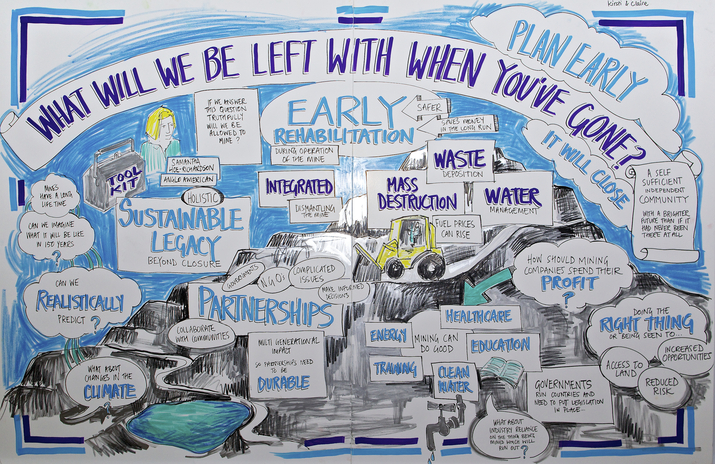 Kirsti & Claire
WHAT WILL WE BE LEFT WITH WHEN YOU'VE GONE?
PLAN EARLY
IT WILL CLOSE
IF WE ANSWER
THIS QUESTION
TRUTHFULLY
WILL WE BE
ALLOWED TO
MINE?
SAMANTHA
ANGLO AMERICAN
TOOL
KIT
EARLY
REHABILITATION
DURING OPERATION
OF THE MINE
SAFER
SAVES MONEY
IN THE LONG RUN
INTEGRATED
DISMANTLING
THE MINE
WASTE
DEPOSITION
MASS
DESTRUCTION
WATER
MANAGEMENT
FUEL PRICES
CAN RISE
A SELF
SUFFICIENT
INDEPENDENT
COMMUNITY
WITH A BRIGHTER
FUTURE THAN IF IT
HAD NEVER BEEN
THERE AT ALL
MINES
HAVE A LONG
LIFE TIME
CAN WE IMAGINE
WHAT IT WILL BE LIKE
IN 150 YEARS
?
CAN WE
REALISTICALLY
PREDICT ?
WHAT ABOUT
CHANGES IN THE
CLIMATE
HOLISTIC
SUSTAINABLE
LEGACY
BEYOND CLOSURE
GOVERNMENTS
NGOs
COMPLICATED
ISSUES
MAKE INFORMED
DECISIONS
PARTNERSHIPS
COLLABORATE
WITH COMMUNITIES
MULTI GENERATIONAL
IMPACT
SO PARTNERSHIPS NEED
TO BE
DURABLE
HOW SHOULD MINING
COMPANIES SPEND THEIR
PROFIT
?
HEALTHCARE
ENERGY
MINING CAN
DO GOOD
EDUCATION
TRAINING
CLEAN
WATER
GOVERNMENTS
RUN COUNTRIES AND
NEED TO PUT LEGISLATION
IN PLACE
WHAT ABOUT
INDUSTRY RELIANCE
ON THE MINE BEING
MINED WHICH WILL
RUN OUT ?
DOING THE
RIGHT THING
OR BEING SEEN TO...
ACCESS TO
LAND
INCREASED
OPPORTUNITIES
REDUCED
RISK